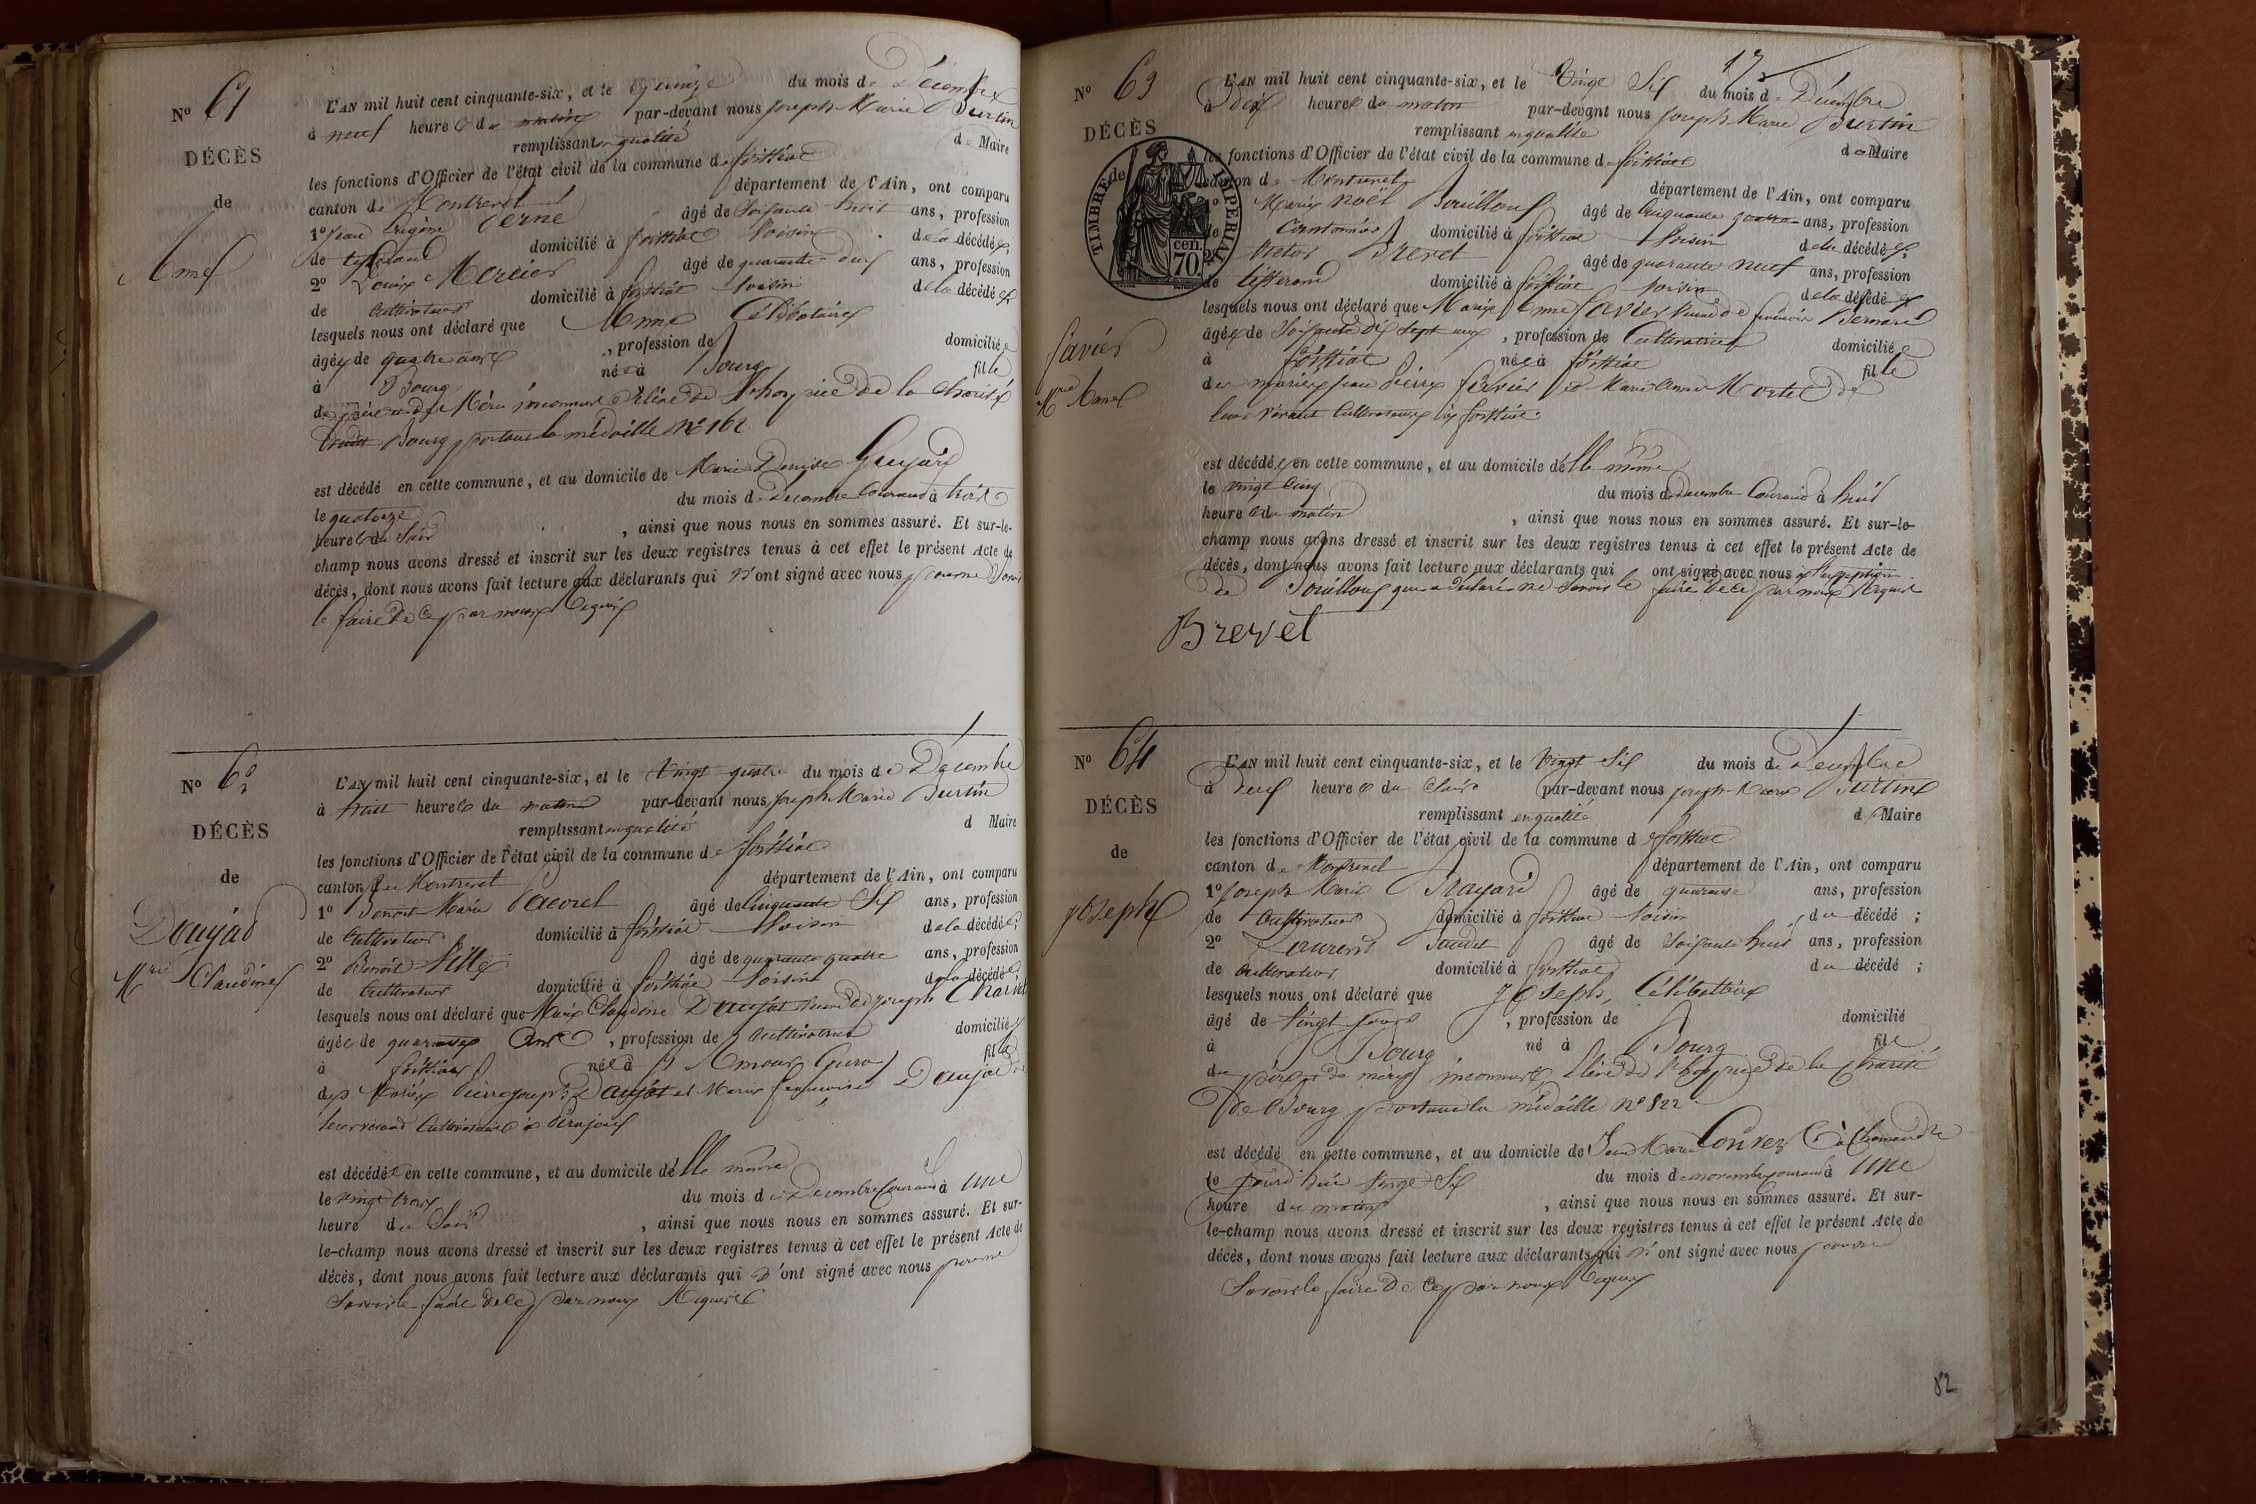 No 61
DÉCÈS
de
Anne
L'AN mil huit cent cinquante-six, et le quinze du mois de Décembre
à neuf heures du matin par-devant nous Joseph Marie Burtin
remplissant en qualité de Maire
les fonctions d'Officier de l'état civil de la commune de foissiat
canton de Montrevel département de l'Ain, ont comparu
1o Jean Verne âgé de soixante huit ans, profession
de tisserand domicilié à foissiat voisin de la décédée,
2o Louis Mercier âgé de quarante deux ans, profession
de Cultivateur domicilié à foissiat voisin de la décédée
lesquels nous ont déclaré que Anne Célibataire
âgée de quatre ans , profession de domiciliée
à Bourg née à Bourg fille
de père et de Mère inconnus Elève de l'hospice de la charité
Bourg portant la médaille No 162
est décédé en cette commune, et au domicile de Marie Denise Guyard
le quatorze du mois de Décembre Courant à trois
heures du Soir , ainsi que nous nous en sommes assuré. Et sur-le-
champ nous avons dressé et inscrit sur les deux registres tenus à cet effet le présent Acte de
décès, dont nous avons fait lecture aux déclarants qui n'ont signé avec nous pour ne Savoir
le faire de ce par nous requis
No 62
DÉCÈS
de
Doujat
Mrie Claudine
L'AN mil huit cent cinquante-six, et le Vingt quatre du mois de Décembre
à huit heures du matin par-devant nous Joseph Marie Burtin
remplissant en qualité d Maire
les fonctions d'Officier de l'état civil de la commune de foissiat
canton de Montrevel département de l'Ain, ont comparu
1o Benoit Marie âgé de Cinquante Six ans, profession
de Cultivateur domicilié à foissiat Voisin de la décédée;
2o Benoit âgé de quarante quatre ans, profession
de Cultivateur domicilié à foissiat Voisin de la décédée
lesquels nous ont déclaré que Marie Claudine Doujat Veuve de Joseph
âgée de quarante ans , profession de Cultivatrice domiciliée
à foissiat née à St Amour (Jura) fille
des Mariés Pierre Joseph Doujat et Marie françoise Doujat de
leur vivant Cultivateurs à
est décédée en cette commune, et au domicile d'elle même
le vingt trois du mois de Décembre Courant à une
heure du Soir , ainsi que nous nous en sommes assuré. Et sur-
le-champ nous avons dressé et inscrit sur les deux registres tenus à cet effet le présent Acte de
décès, dont nous avons fait lecture aux déclarants qui n'ont signé avec nous pour ne
Savoir le faire de ce par nous Requis
17
No 63
DÉCÈS
de
TIMBRE IMPERIAL
70 cen.
favier
Mrie Anne
L'AN mil huit cent cinquante-six, et le Vingt Six du mois de Décembre
à dix heures du matin par-devant nous Joseph Marie Burtin
remplissant en qualité de Maire
les fonctions d'Officier de l'état civil de la commune de foissiat
canton de Montrevel département de l'Ain, ont comparu
1o Marie noël Bouilloux âgé de Cinquante quatre ans, profession
de Cantonnier domicilié à foissiat Voisin de la décédée
2o Victor Brevet âgé de quarante neuf ans, profession
de tisserand domicilié à foissiat voisin de la décédée
lesquels nous ont déclaré que Marie Anne favier Veuve de françois Bernard
âgée de Soixante dix sept ans , profession de Cultivatrice domiciliée
à foissiat née à foissiat fille
des mariés Jean Pierre favier et Marie Anne de
leur vivant Cultivateurs à foissiat.
est décédée en cette commune, et au domicile d'elle même
le vingt Cinq du mois de Décembre Courant à huit
heures du matin , ainsi que nous nous en sommes assuré. Et sur-le-
champ nous avons dressé et inscrit sur les deux registres tenus à cet effet le présent Acte de
décès, dont nous avons fait lecture aux déclarants qui ont signé avec nous à l'exception
de Bouilloux qui a déclaré ne Savoir le faire de ce par nous Requis
Brevet
No 64
DÉCÈS
de
Joseph
L'AN mil huit cent cinquante-six, et le Vingt Six du mois de Décembre
à Deux heures du Soir par-devant nous Joseph Marie Burtin
remplissant en qualité de Maire
les fonctions d'Officier de l'état civil de la commune de foissiat
canton de Montrevel département de l'Ain, ont comparu
1o Joseph Marie Brayard âgé de quarante ans, profession
de Cultivateur domicilié à foissiat Voisin du décédé ;
2o Laurent âgé de Soixante huit ans, profession
de Cultivateur domicilié à foissiat du décédé ;
lesquels nous ont déclaré que Joseph, Célibataire
âgé de Vingt jours , profession de domicilié
à Bourg né à Bourg fils
de père et de mère inconnus Elève de l'hospice de la Charité
de Bourg portant la médaille No 822
est décédé en cette commune, et au domicile de Jean Marie Convert
le jourd'hui Vingt Six du mois de novembre courant à une
heure du matin , ainsi que nous nous en sommes assuré. Et sur-
le-champ nous avons dressé et inscrit sur les deux registres tenus à cet effet le présent Acte de
décès, dont nous avons fait lecture aux déclarants qui n'ont signé avec nous pour ne
Savoir le faire de ce par nous requis
82